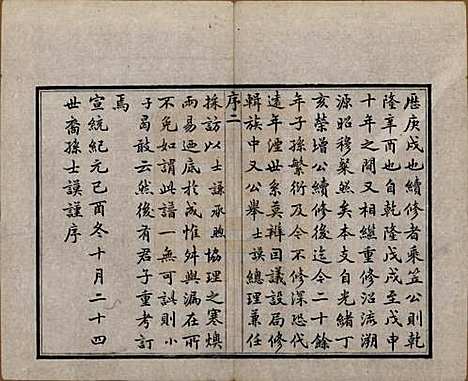 歷庚戌也續修者乘笠公則乾
隆辛酉也自乾隆戊戌至戊申
十年之間又相繼重修沿流溯
源昭穆粲然矣本支自光緒丁
亥榮增公續修後迄今二十餘
年子孫繁衍及今不修深恐代
遠年湮世系莫辨因議設局修
輯族中又公舉士謨總理兼任
序二
採訪以士謙承煦協理之寒燠
兩易迺底於成惟舛與漏在所
不免如謂此譜一無可誤則小
子曷敢云然後有君子重考訂
焉
宣統紀元己酉冬十月二十四
世裔孫士謨謹序